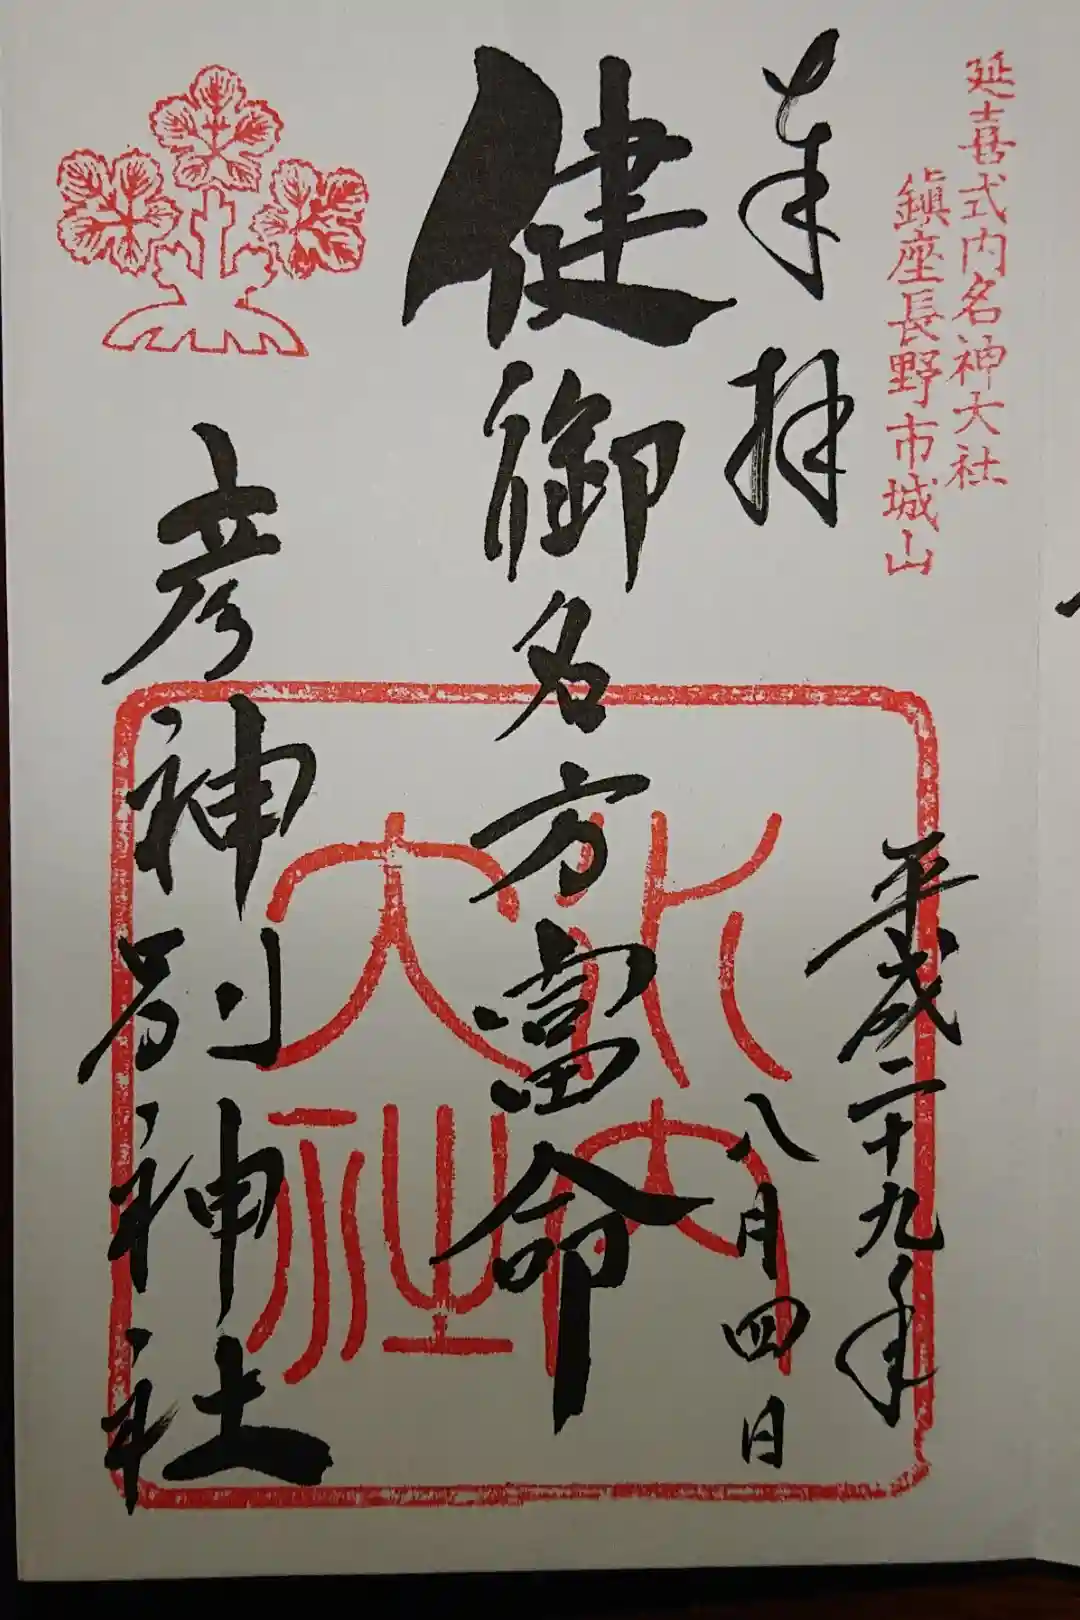 延喜式内名神大社
鎮座長野市城山
奉拝
平成二十九年
八月四日
健御名方富命
彦神別神社
式内大社